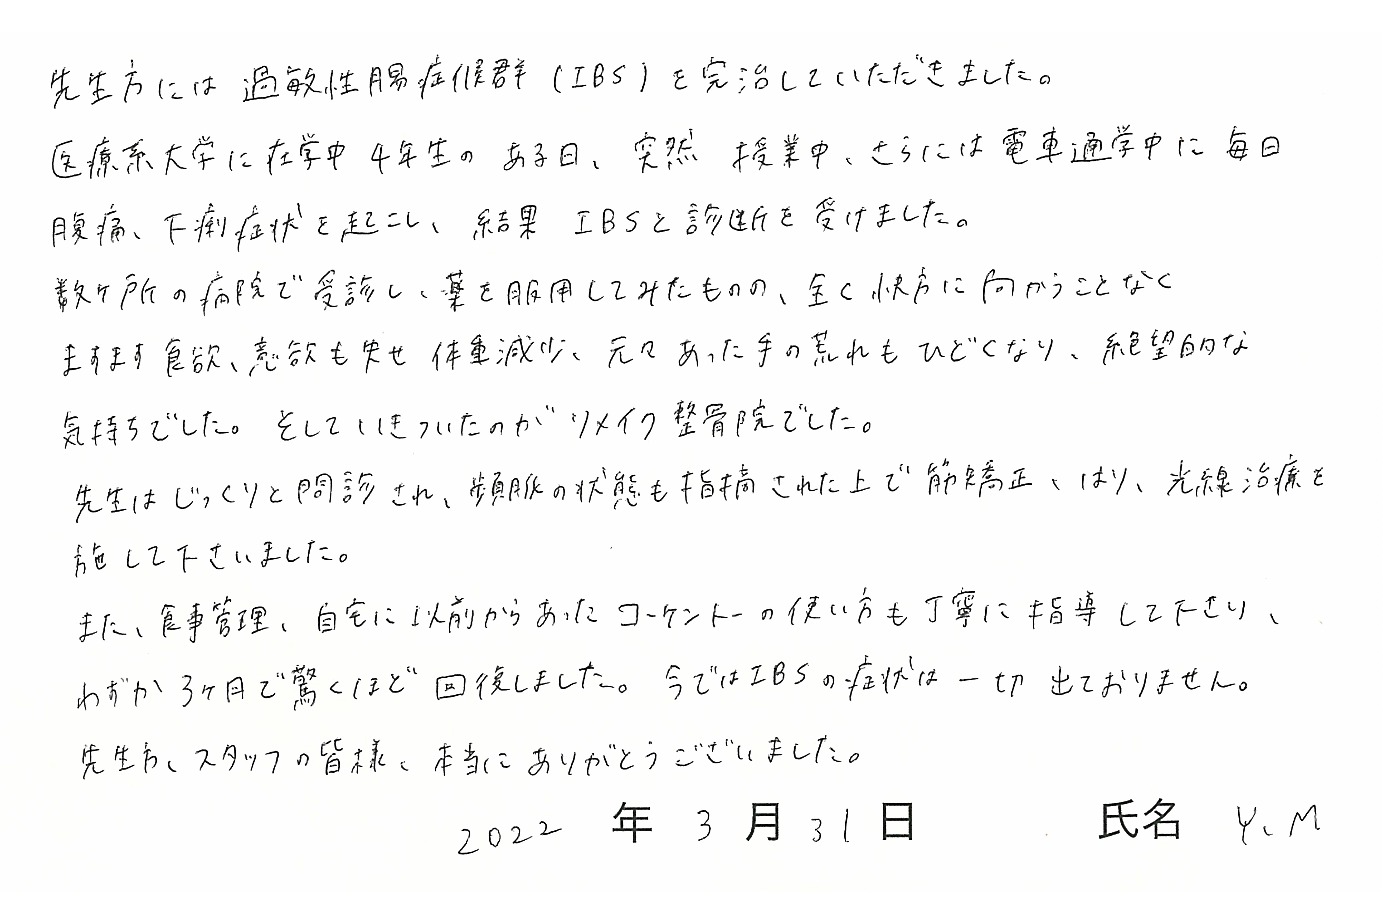 先生方には過敏性腸症候群(IBS)を完治していただきました。
医療系大学に在学中4年生のある日、突然 授業中、さらには電車通学中に毎日
腹痛、下痢症状を起こし、結果 IBSと診断を受けました。
数ヶ所の病院で受診し、薬を服用してみたものの、全く快方に向かうことなく
ますます食欲、意欲も失せ 体重減少、元々あった手の荒れもひどくなり、絶望的な
気持ちでした。そしていきついたのがリメイク整骨院でした。
先生はじっくりと問診され、頻脈の状態も指摘された上で筋矯正、はり、光線治療を
施して下さいました。
また、食事管理、自宅に以前からあったコーケントーの使い方も丁寧に指導して下さり、
わずか3ヶ月で驚くほど回復しました。今ではIBSの症状は一切出ておりません。
先生方、スタッフの皆様、本当にありがとうございました。
2022 年 3 月 31 日 氏名 Y、M